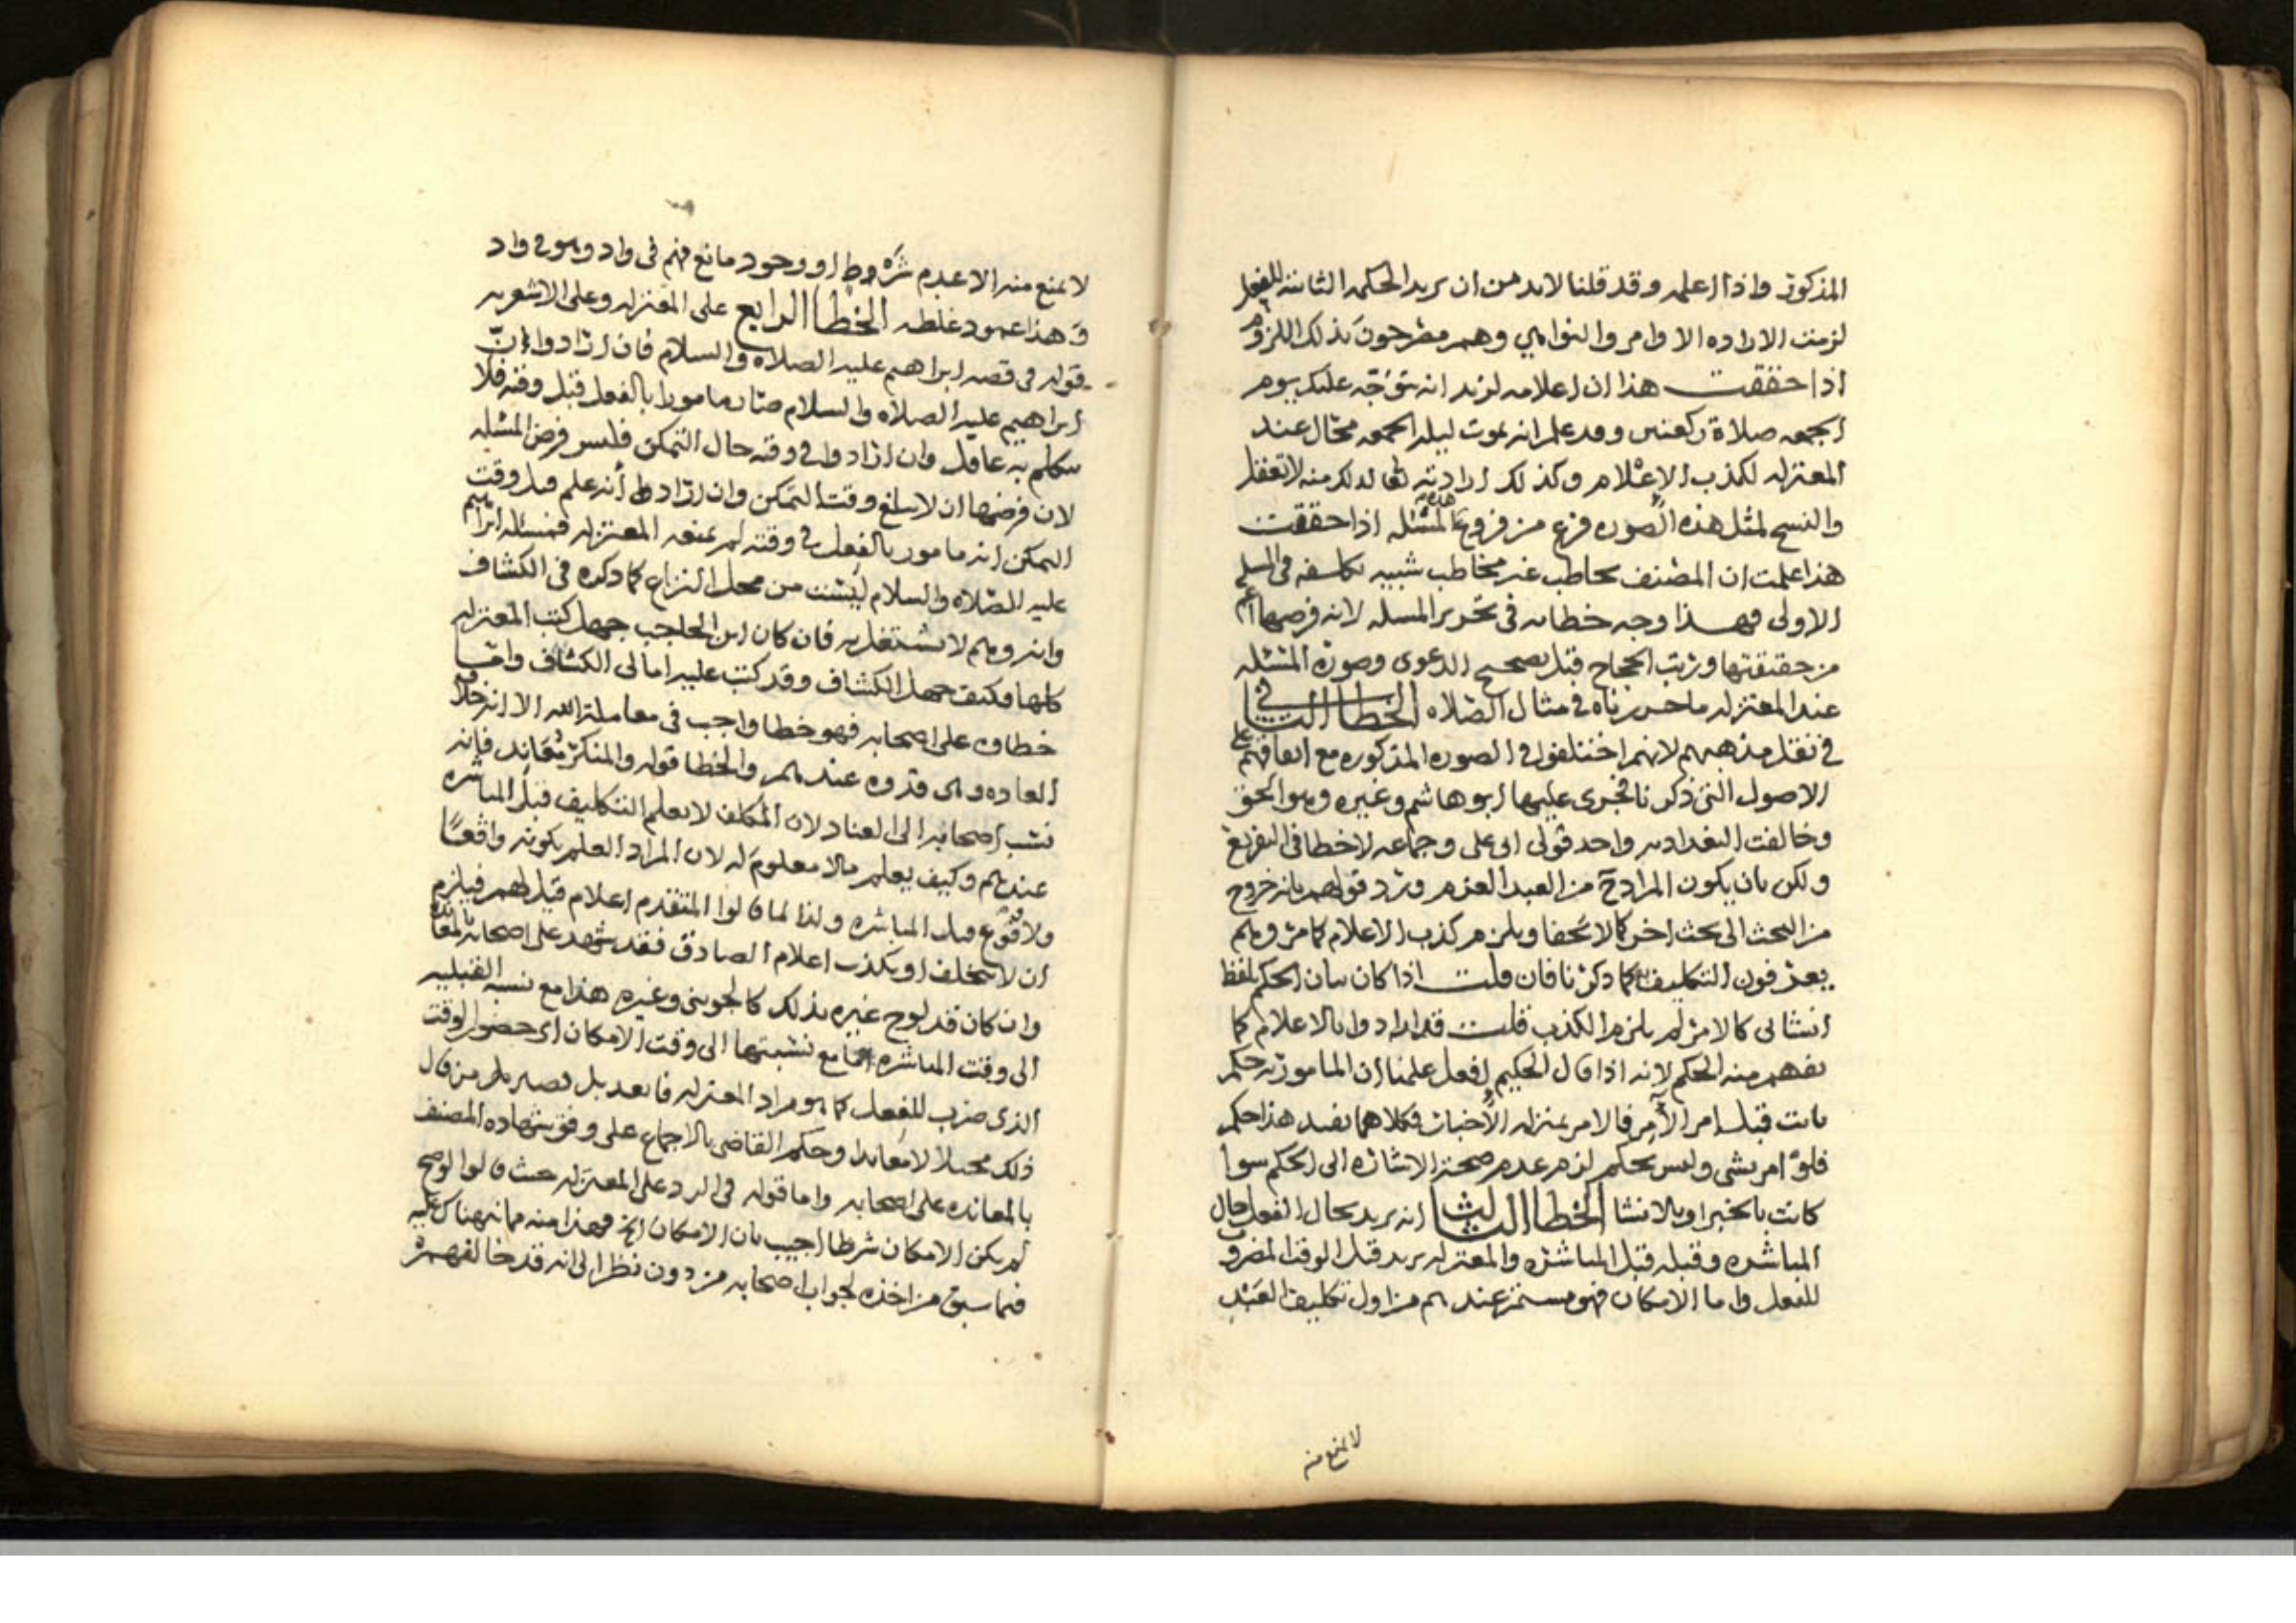 المذكورة واذا اعلم وقد قلنا لابد من ان يريد الحكم الثابتة للفعل
لزمت الاراده الاوامر والنواهي وهم مصرحون بذلك اللزوم
اذا حققت هذا ان اعلامه لزيد انه يتوجه عليك يوم
الجمعه صلاة ركعتين وقد علم انه يموت ليله الجمعه محال عند
المعتزله لكذب الاعلام وكذلك ارادته تعالى لذلك منه لا تعقل
والنسخ لمثل هذه الصوره فرع من فروع هذه المسئله اذا حققت
هذا علمت ان المصنف يخاطب غير مخاطب شبيه في المسله
الاولى فهذا وجه خطائه في تحرير المسله لانه فرضها اعم
من حقيقتها ورتب الحجاج قبل تصحيح الدعوى وصورة المسئله
عند المعتزله ما حررناه في مثال الصلاه الخطا الثاني
في نقل مذهبهم لانهم اختلفوا في الصوره المذكوره مع اتفاقهم على
الاصول التي ذكرنا فجرى عليها ابو هاشم وغيره وهو الحق
وخالفت البغداديه واحد قولي ابي على وجماعه لا خطا في التفريع
ولكن بان يكون المراد من العبد العزم ويرد قولهم بانه خروج
من البحث الى بحث اخر كما لا يخفا ويلزم كذب الاعلام كما مر وهم
يعرفون التكليف به كما ذكرنا فان قلت اذا كان بيان الحكم بلفظ
انشائي كالامر لم يلزم الكذب قلت قد ارادوا بالاعلام كما
يفهم منه الحكم لانه اذا قال الحكيم افعل علمنا ان المامور به حكم
ثابت قبل امر الآمر فالامر بمنزله الاخبار فكلاهما يفيد هذا حكم
فلو امر بشي وليس بحكم لزم عدم صحة الاشاره الى الحكم سوا
كانت بالخبر او بالانشا الخطا الثالث انه يريد بحال الفعل حال
المباشره وقبله قبل المباشره والمعتزله يريد قبل الوقت المضروب
للفعل واما الامكان فهو مستمر عندهم من اول تكليف العبد
لا يمنع منه
لا يمنع منه الا عدم شروط او وجود مانع فهم في واد وهو في واد
وهذا عمود غلطه الخطا الرابع على المعتزله وعلى الاشعريه
قوله في قصه ابراهيم عليه الصلاه والسلام فان ارادوا ان
ابراهيم عليه الصلاه والسلام صار مامورا بالفعل قبل وقته فلا
يتكلم به عاقل وان ارادوا في وقته حال التمكن فليس فرض المسئله
لان فرضها ان لا يبلغ وقت التمكن وان ارادوا أنه علم قبل وقت
التمكن انه مامور بالفعل في وقته لم يمنعه المعتزله فمسئله ابراهيم
عليه الصلاه والسلام ليست من محل النزاع كما ذكره في الكشاف
وانه وهم لا يشتغل به فان كان ابن الحاجب جهل كتب المعتزله
كلها فكيف جهل الكشاف وقد كتب عليه امالى الكشاف واما
خطاؤه على اصحابه فهو خطا واجب في معاملة الله الا انه خلاف
العاده وهى قدوه عندهم والخطا قوله والمنكر معاند فانه
نسب اصحابه الى العناد لان المكلف لا يعلم التكليف قبل المباشره
عندهم وكيف يعلم مالا معلوم له لان المراد العلم بكونه واقعًا
ولا وقوع قبل المباشره ولذا لما قالوا المتقدم اعلام قيل لهم فيلزم
ان لا يتخلف او يكذب اعلام الصادق فقد شهد على اصحابه بالمعانده
وان كان قد لوح غيره بذلك كالجويني وغيره هذا مع نسبه القبليه
الى وقت المباشره اما مع نسبتها الى وقت الامكان اى حضور الوقت
الذى ضرب للفعل كما هو مراد المعتزله فابعد بل من قال
ذلك لا معاندا وحكم القاضي بالاجماع على وفق شهاده المصنف
بالمعانده على اصحابه واما قوله في الرد على المعتزله حيث قالوا لو صح
لم يكن الامكان شرطا اجيب بان الامكان الخ فهذا منه هناك عليه
فيما سبق من اخذه لجواب اصحابه من دون نظر الى انه قد خالفهم